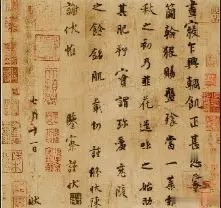 晝寢乍興輖飢正甚忽
簡翰猥賜盤飧當一葉報
秋之初乃韭花逞味之始助
其肥羜實謂珍羞充腹
之餘銘肌載切謹修狀陳
謝伏惟
鑒察謹狀
七月十一日 狀